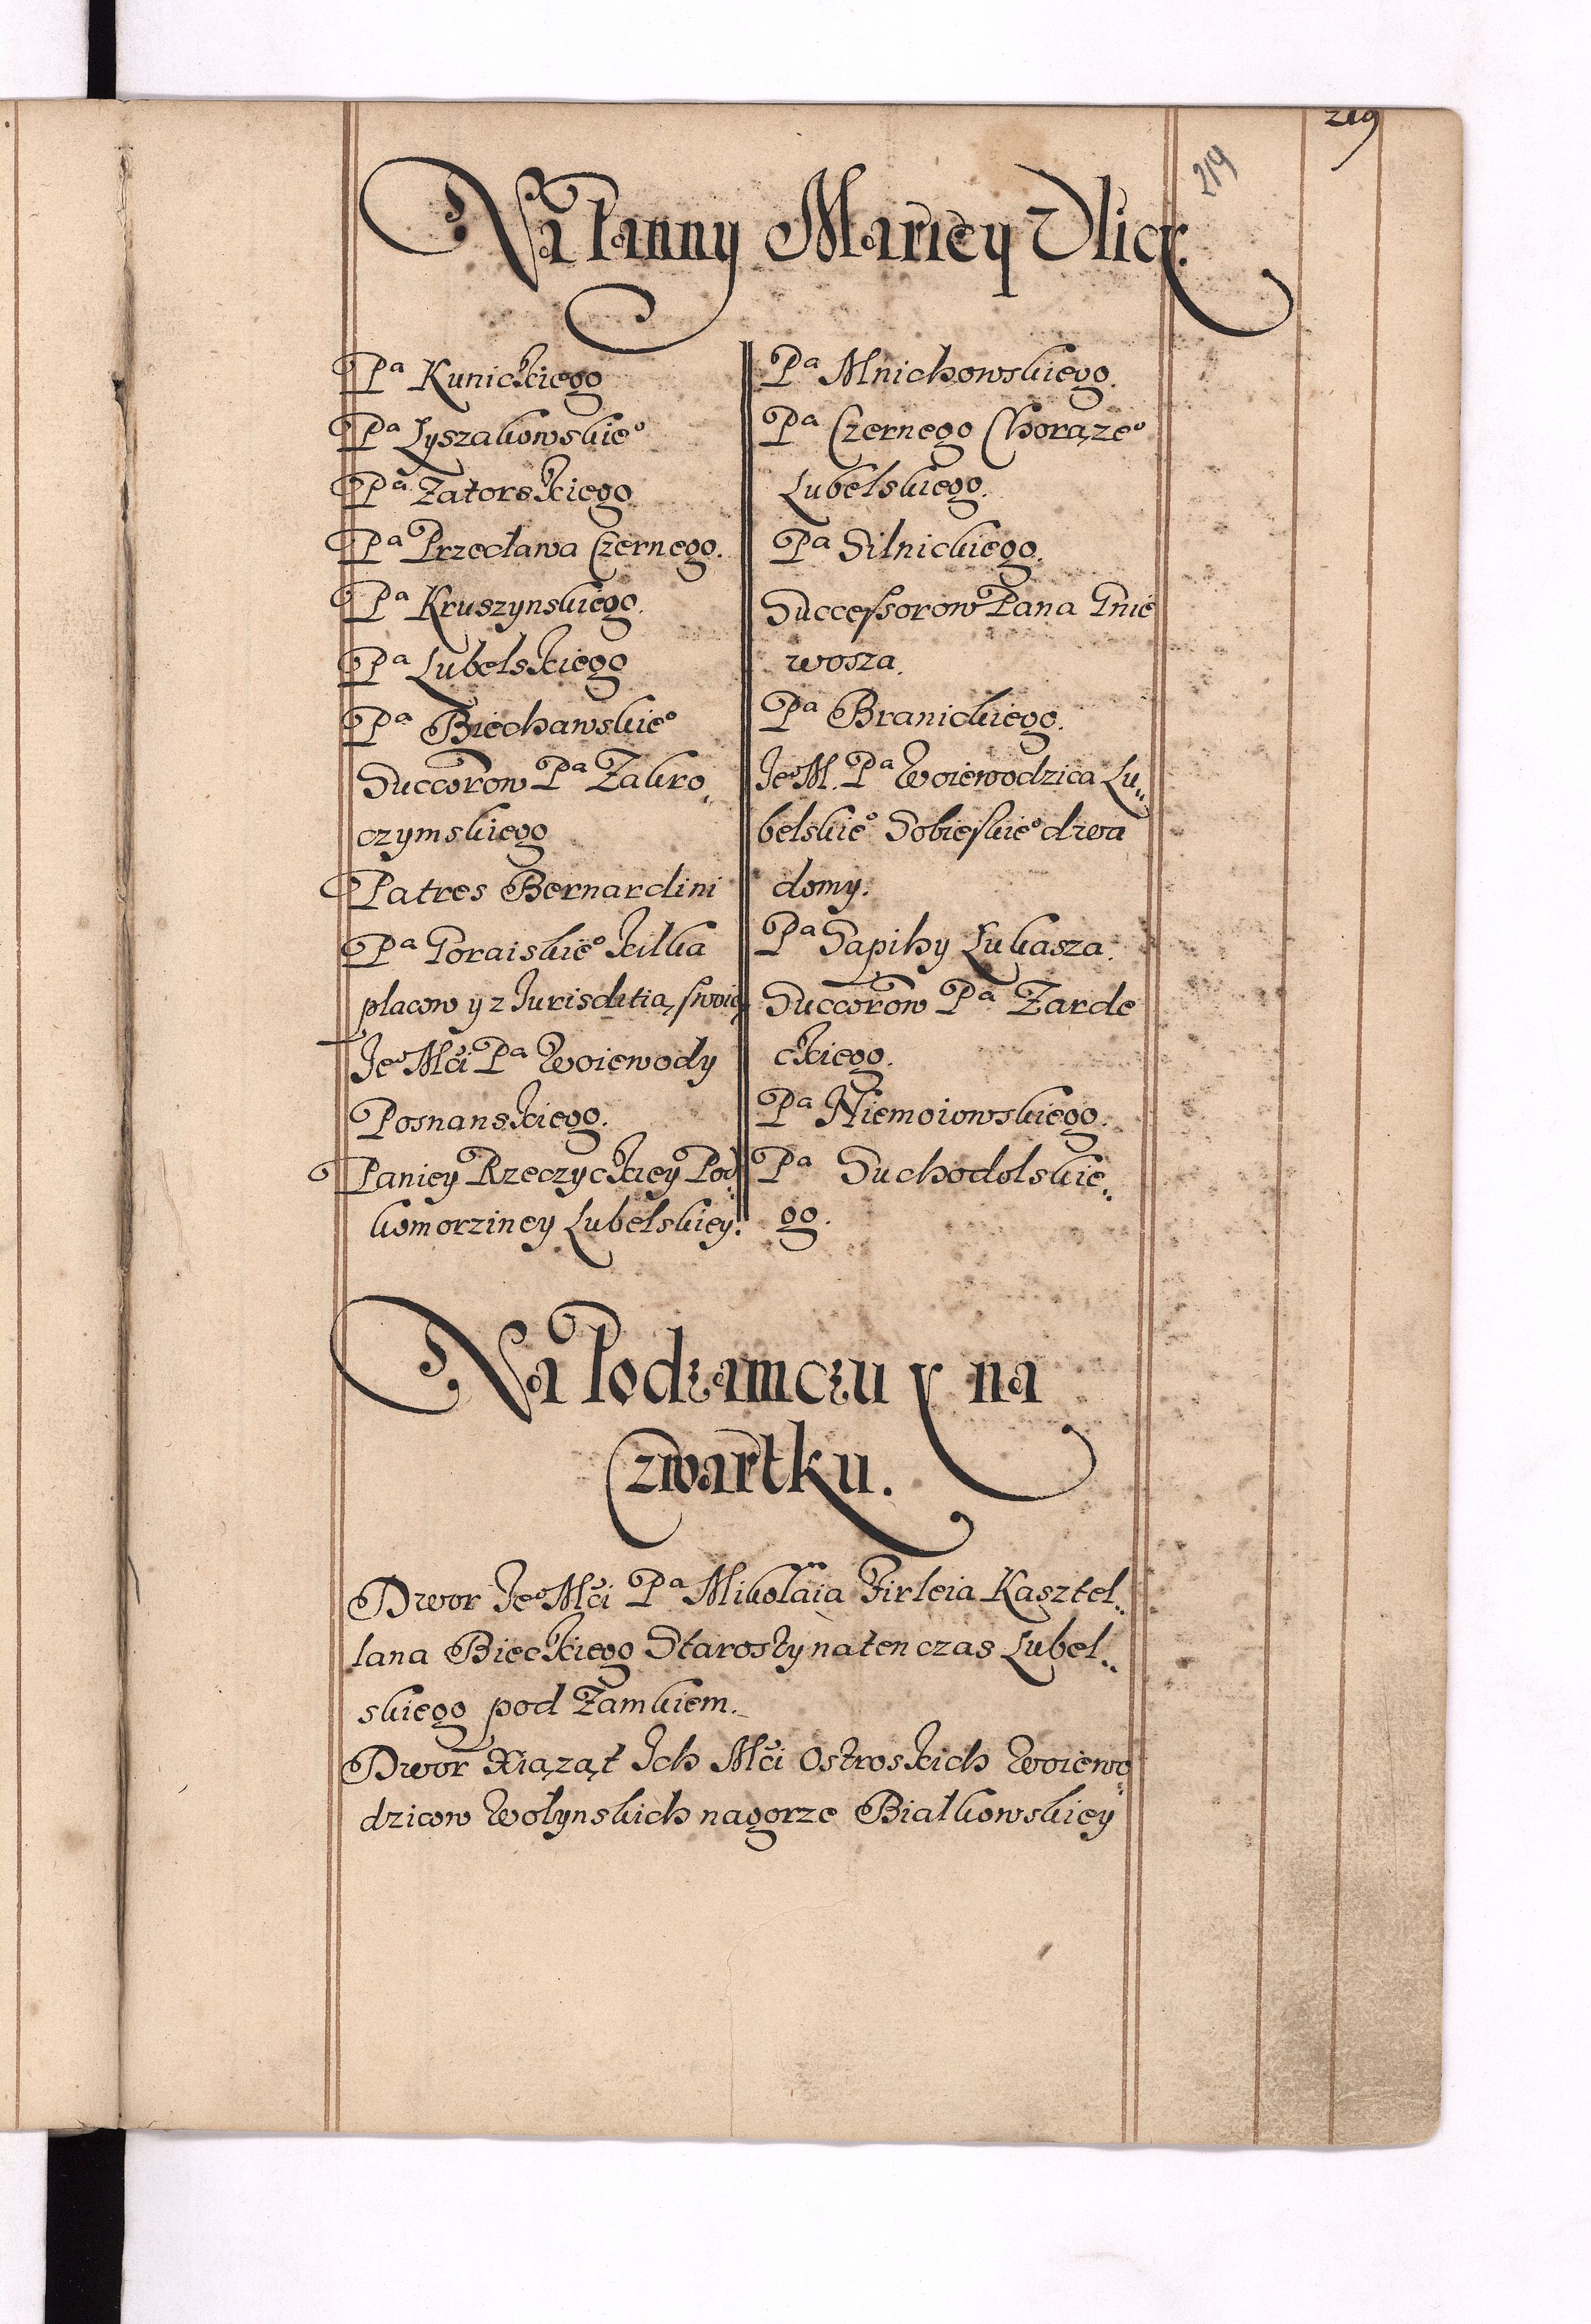 219
219
Na Panny Mariey Vlicy.
Pª Kunickiego
Pª Lyszakowskieº
Pª Zatorskiego
Pª Przecława Czernego.
Pª Kruszynskiego.
Pª Lubelskiego
Pª Biechawskieº
Succorow Pª Zakro„
czymskiego
Patres Bernardini
Pª Goraiskieº kilka
placow y z Iurisditią swoią
Jeº Mći Pª Woiewody
Posnanskiego.
Paniey Rzeczyckiey Pod„
komorziney Lubelskiey.
Pª Mnichowskiego.
Pª Czernego Chorązeº
Lubelskiego.
Pª Silnickiego.
Successorow Pana Gnie
wosza.
Pª Branickiego.
Jeº M. Pª Woiewodzica Lu„
belskieº Sobieskieº dwa
domy.
Pª Sapihy Lukasza.
Succorow Pª Zarde
ckiego.
Pª Niemoiowskiego.
Pª Suchodolskie„
go.
Na Podzamczu y na
Czwartku.
Dwor Jeº Mći Pª Mikołaia Firleia Kasztel„
lana Bieckiego Starosty naten czas Lubel„
skiego pod Zamkiem.
Dwor Xiąząt Ich Mći Ostroskich Woiewo„
dzicow Wołynskich nagorze Białkowskiey